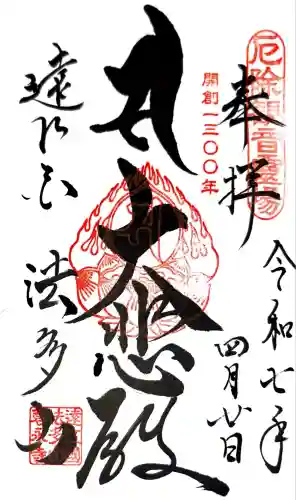 厄除観音霊場
奉拝
令和七年
四月廿日
開創一三〇〇年
大悲殿
遠江国
法多山